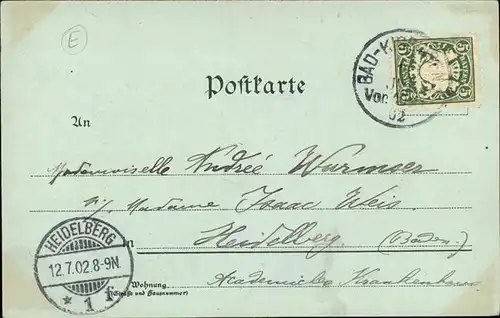 E
BAD-KI
Vor
02
5 5
Postkarte
An
Mademoiselle Andrée Wurmser
c/o Madame Isaac Weis
in Heidelberg. (Baden.)
HEIDELBERG
12.7.02.8-9N.
* 1 f
Wohnung
(Straße und Hausnummer)
Academisches Krankenhaus